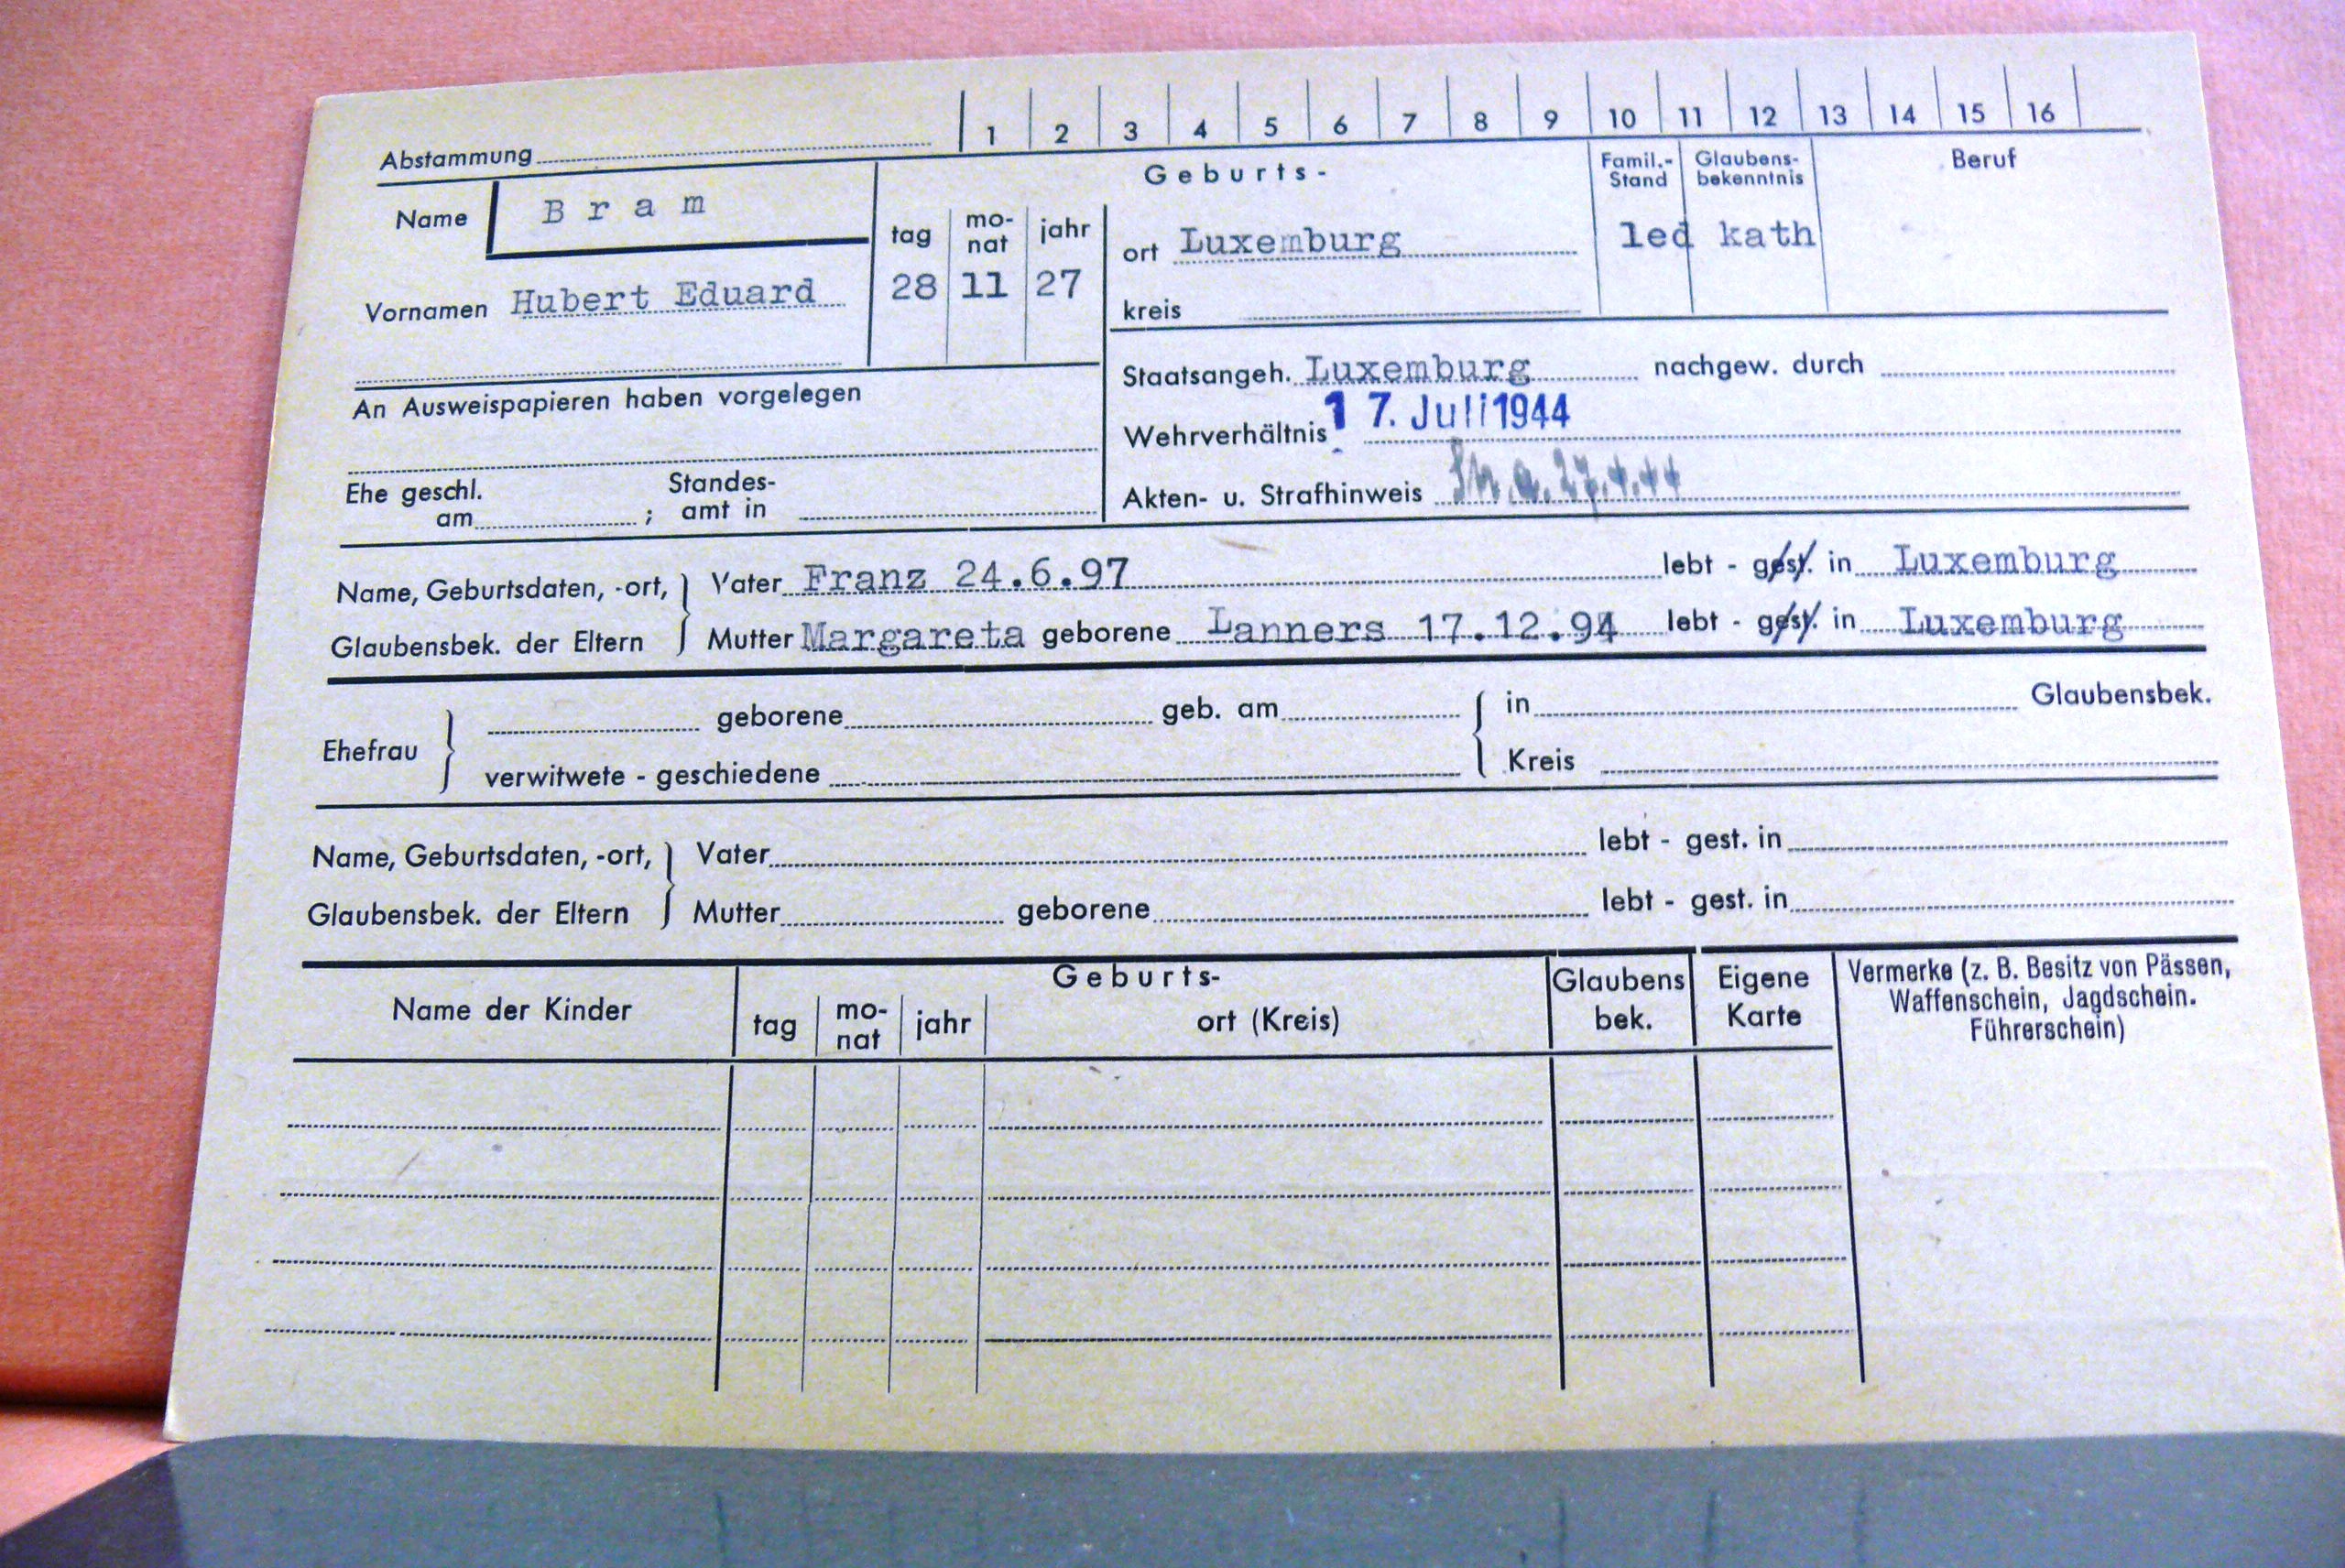 1 2 3 4 5 6 7 8 9 10 11 12 13 14 15 16
Abstammung
Geburts-
Famil.-Stand Glaubens-bekenntnis Beruf
Name B r a m
tag mo-nat jahr
ort Luxemburg led kath
Vornamen Hubert Eduard 28 11 27
kreis
Staatsangeh. Luxemburg nachgew. durch
An Ausweispapieren haben vorgelegen
Wehrverhältnis 17. Juli 1944
Ehe geschl. am ; Standes-amt in
Akten- u. Strafhinweis
Name, Geburtsdaten, -ort, Vater Franz 24.6.97 lebt - gest. in Luxemburg
Glaubensbek. der Eltern Mutter Margareta geborene Lanners 17.12.94 lebt - gest. in Luxemburg
Ehefrau geborene geb. am in Glaubensbek.
verwitwete - geschiedene Kreis
Name, Geburtsdaten, -ort, Vater lebt - gest. in
Glaubensbek. der Eltern Mutter geborene lebt - gest. in
Name der Kinder Geburts- Glaubens bek. Eigene Karte Vermerke (z. B. Besitz von Pässen,
Waffenschein, Jagdschein.
tag mo-nat jahr ort (Kreis) Führerschein)